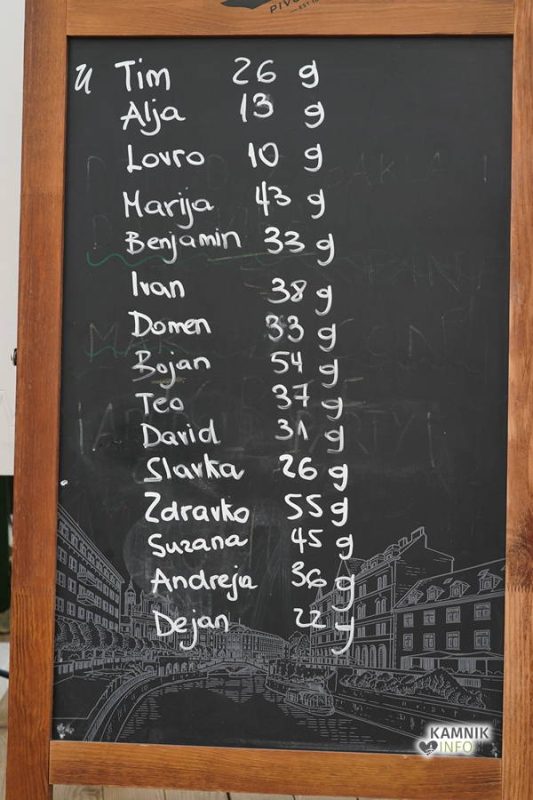 PIVO
EST 18
u Tim 26 g
Alja 13 g
Lovro 10 g
Marija 43 g
Benjamin 33 g
Ivan 38 g
Domen 33 g
Bojan 54 g
Teo 37 g
David 31 g
Slavka 26 g
Zdravko 55 g
Suzana 45 g
Andreja 36 g
Dejan 22 g
KAMNIK
INFO